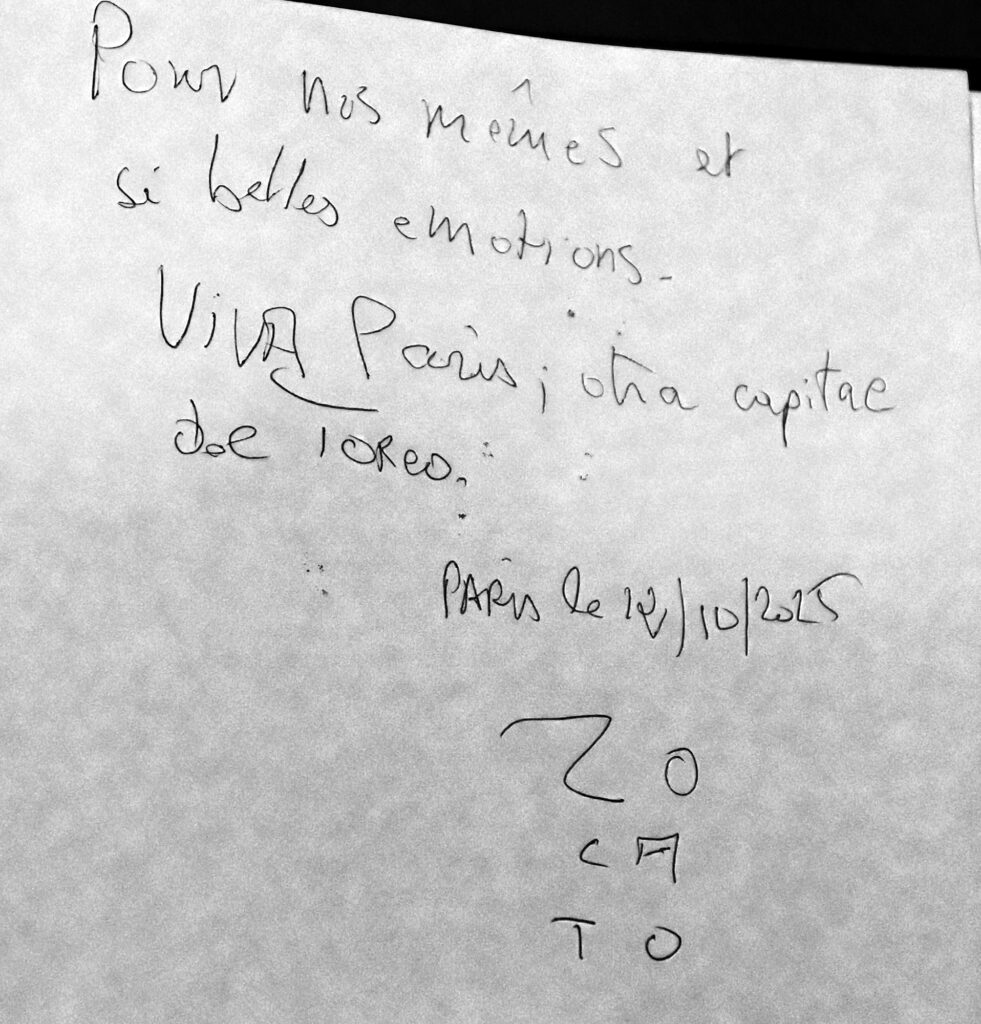 Pour nos mêmes et
si belles emotions.
ViVA Paris, otra capitae
doe TOReo.
PARis le 12/10/2025
ZO
CA
TO